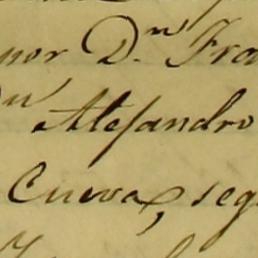 nor Dn. Fra
Dn Alejandro
Cueva, seg